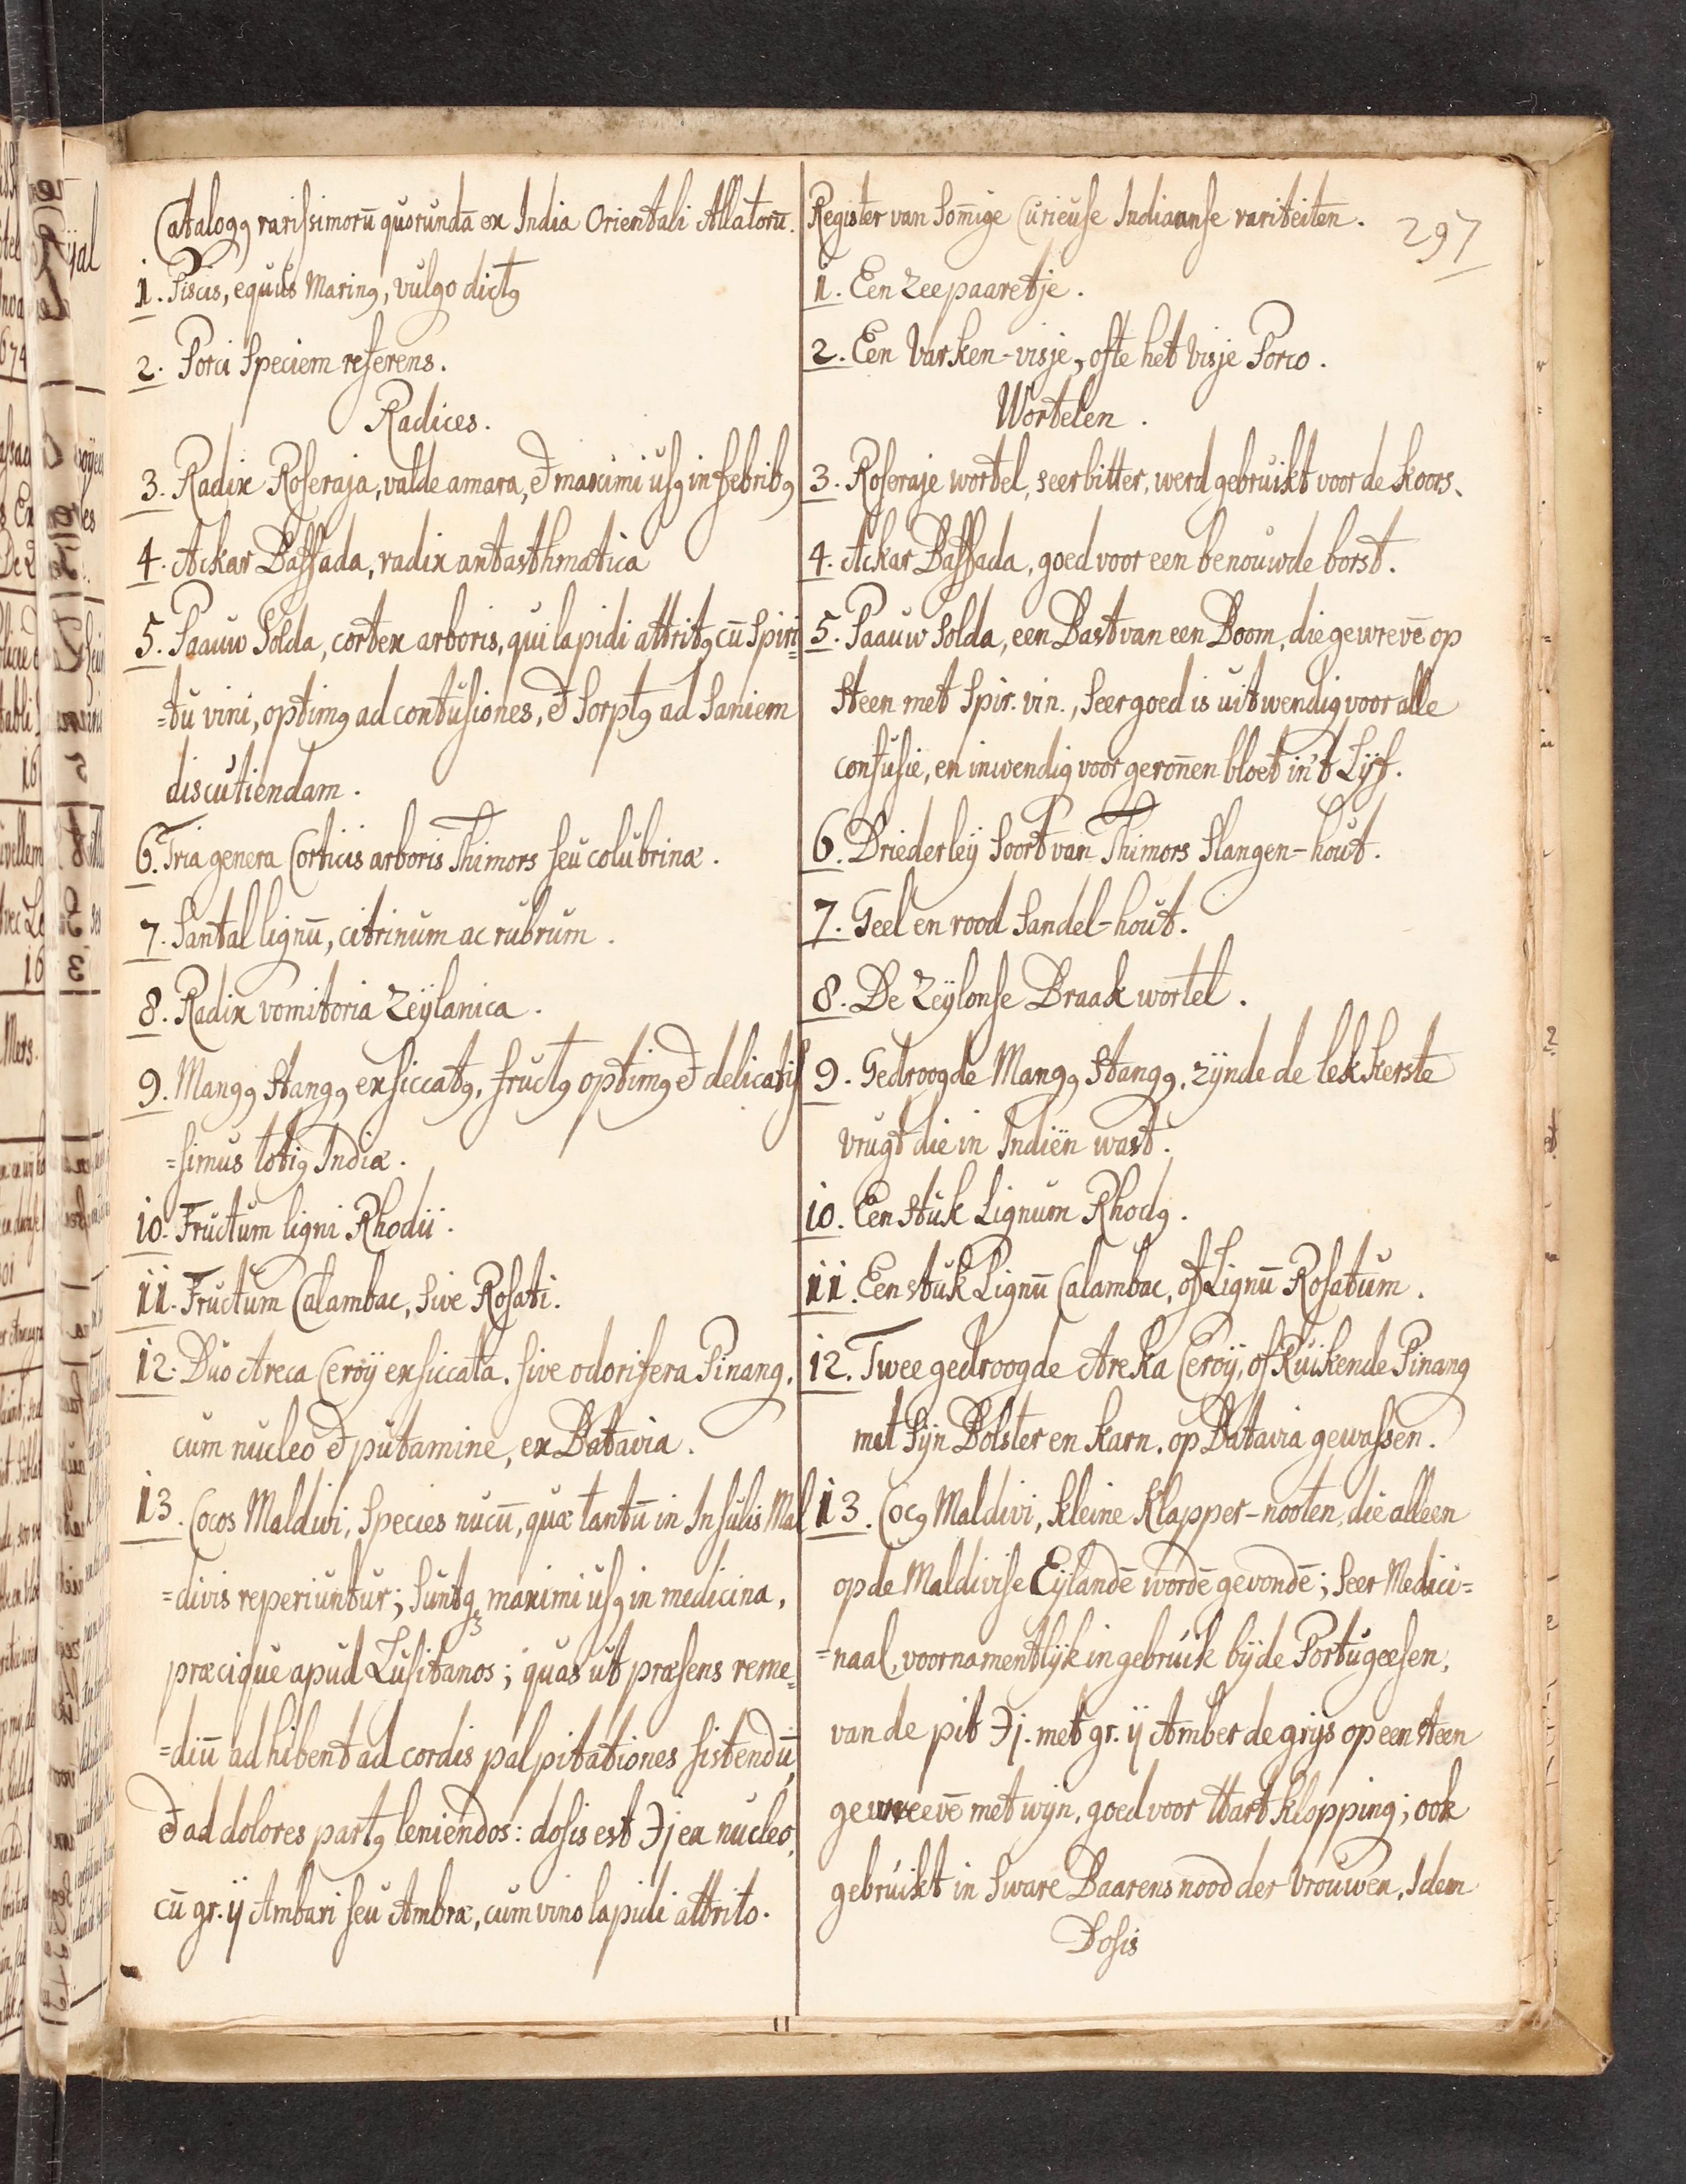 Catalogꝰ rarissimorū quorundā ex India Orientali Allatorū.
1. Piscis, equus Marinꝰ, vulgo dictꝰ
2. Porci Speciem referens.
Radices.
3. Radix Roseraja, valde amara, & maximi usꝰ in febribꝰ
4. Ackar Bassada, radix antasthmatica
5. Paauw Solda, cortex arboris, qui lapidi attritꝰ cū Spiri=
=tu vini, optimꝰ ad contusiones, & Sorptꝰ ad Saniem
discutiendam.
6. Tria genera Corticis arboris Thimors seu colubrinæ.
7. Santal lignū, citrinum ac rubrum.
8. Radix vomitoria Zeÿlanica.
9. Mangꝰ Stangꝰ exsiccatꝰ, fructꝰ optimꝰ & delicatis
=simus totiꝰ Indiæ.
10. Fructum ligni Rhodii.
11. Fructum Calambac, sive Rosati.
12. Duo Areca Ceroÿ exsiccata. sive odorifera Pinang,
cum nucleo & putamine, ex Batavia.
13. Cocos Maldivi, Species nucū, quæ tantū in Insulis Mal
=divis reperiuntur; Suntqꝫ maximi usꝰ in medicina,
præcique apud Lusitanos; quas ut præsens reme=
=diū adhibent ad cordis palpitationes sistendū,
& ad dolores partꝰ leniendos: dosis est ℈j ex nucleo,
cū gr. ij Ambari seu Ambræ, cum vino lapidi attrito.
Register van Som̄ige Curieuse Indiaanse rariteiten.
297
1. Een Zeepaaretje.
2. Een Varken-visje, ofte het visje Porco.
Wortelen.
3. Roseraje wortel, seer bitter, werd gebruikt voor de koors.
4. Ackar Bassada, goed voor een benouwde borst.
5. Paauw Solda, een Bast van een Boom, die gewrevē op
Steen met Spir. vin., Seer goed is uitwendig voor alle
contusie, en inwendig voor geron̄en bloet in't Lÿf.
6. Driederleÿ Soort van Thimors Slangen-hout.
7. Geel en rood Sandel-hout.
8. De Zeÿlonse Braak wortel.
9. Gedroogde Mangꝰ Stangꝰ, zÿnde de lekkerste
vrugt die in Indiën wast.
10. Een Stuk Lignum Rhodꝰ.
11. Een stuk Lignū Calambac, of Lignū Rosatum.
12. Twee gedroogde Areka Ceroÿ, of Ruikende Pinang
met Sÿn Bolster en karn. op Batavia gewassen.
13. Cocꝰ Maldivi, kleine Klapper-nooten, die alleen
op de Maldivise Eÿlandē wordē gevondē; Seer Medici=
=naal, voornamentlÿk in gebruik bÿ de Portugeesen,
van de pit ℈j. met gr. ij Amber de grijs op een Steen
gewreevē met wÿn, goed voor ttart klopping; ook
gebruikt in Sware Baarens nood der Vrouwen, Idem
Dosis